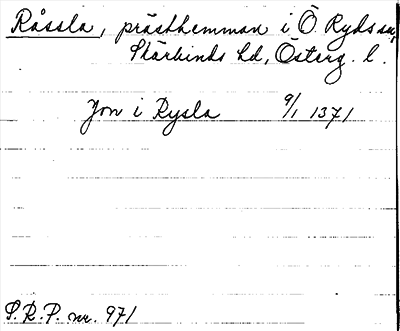 Råssla, prästhemman i Ö. Ryds sn,
Skärkinds hd, Österg. l.
Jon i Rysla 9/1 1371
S.R.P. nr. 971